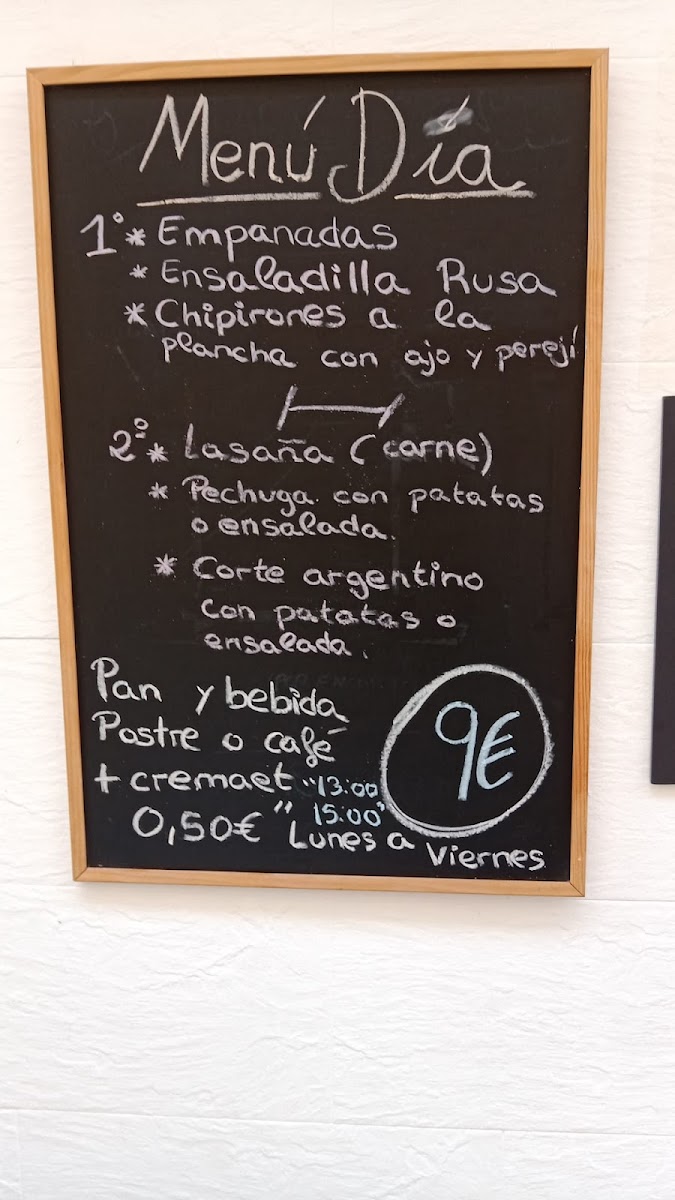 Menú Día
1º * Empanadas
* Ensaladilla Rusa
* Chipirones a la
plancha con ajo y perejí
2º * Lasaña (carne)
* Pechuga con patatas
o ensalada.
* Corte argentino
con patatas o
ensalada.
Pan y bebida
Postre o café
+ cremaet "13:00
0,50€ " 15:00"
Lunes a Viernes
9€